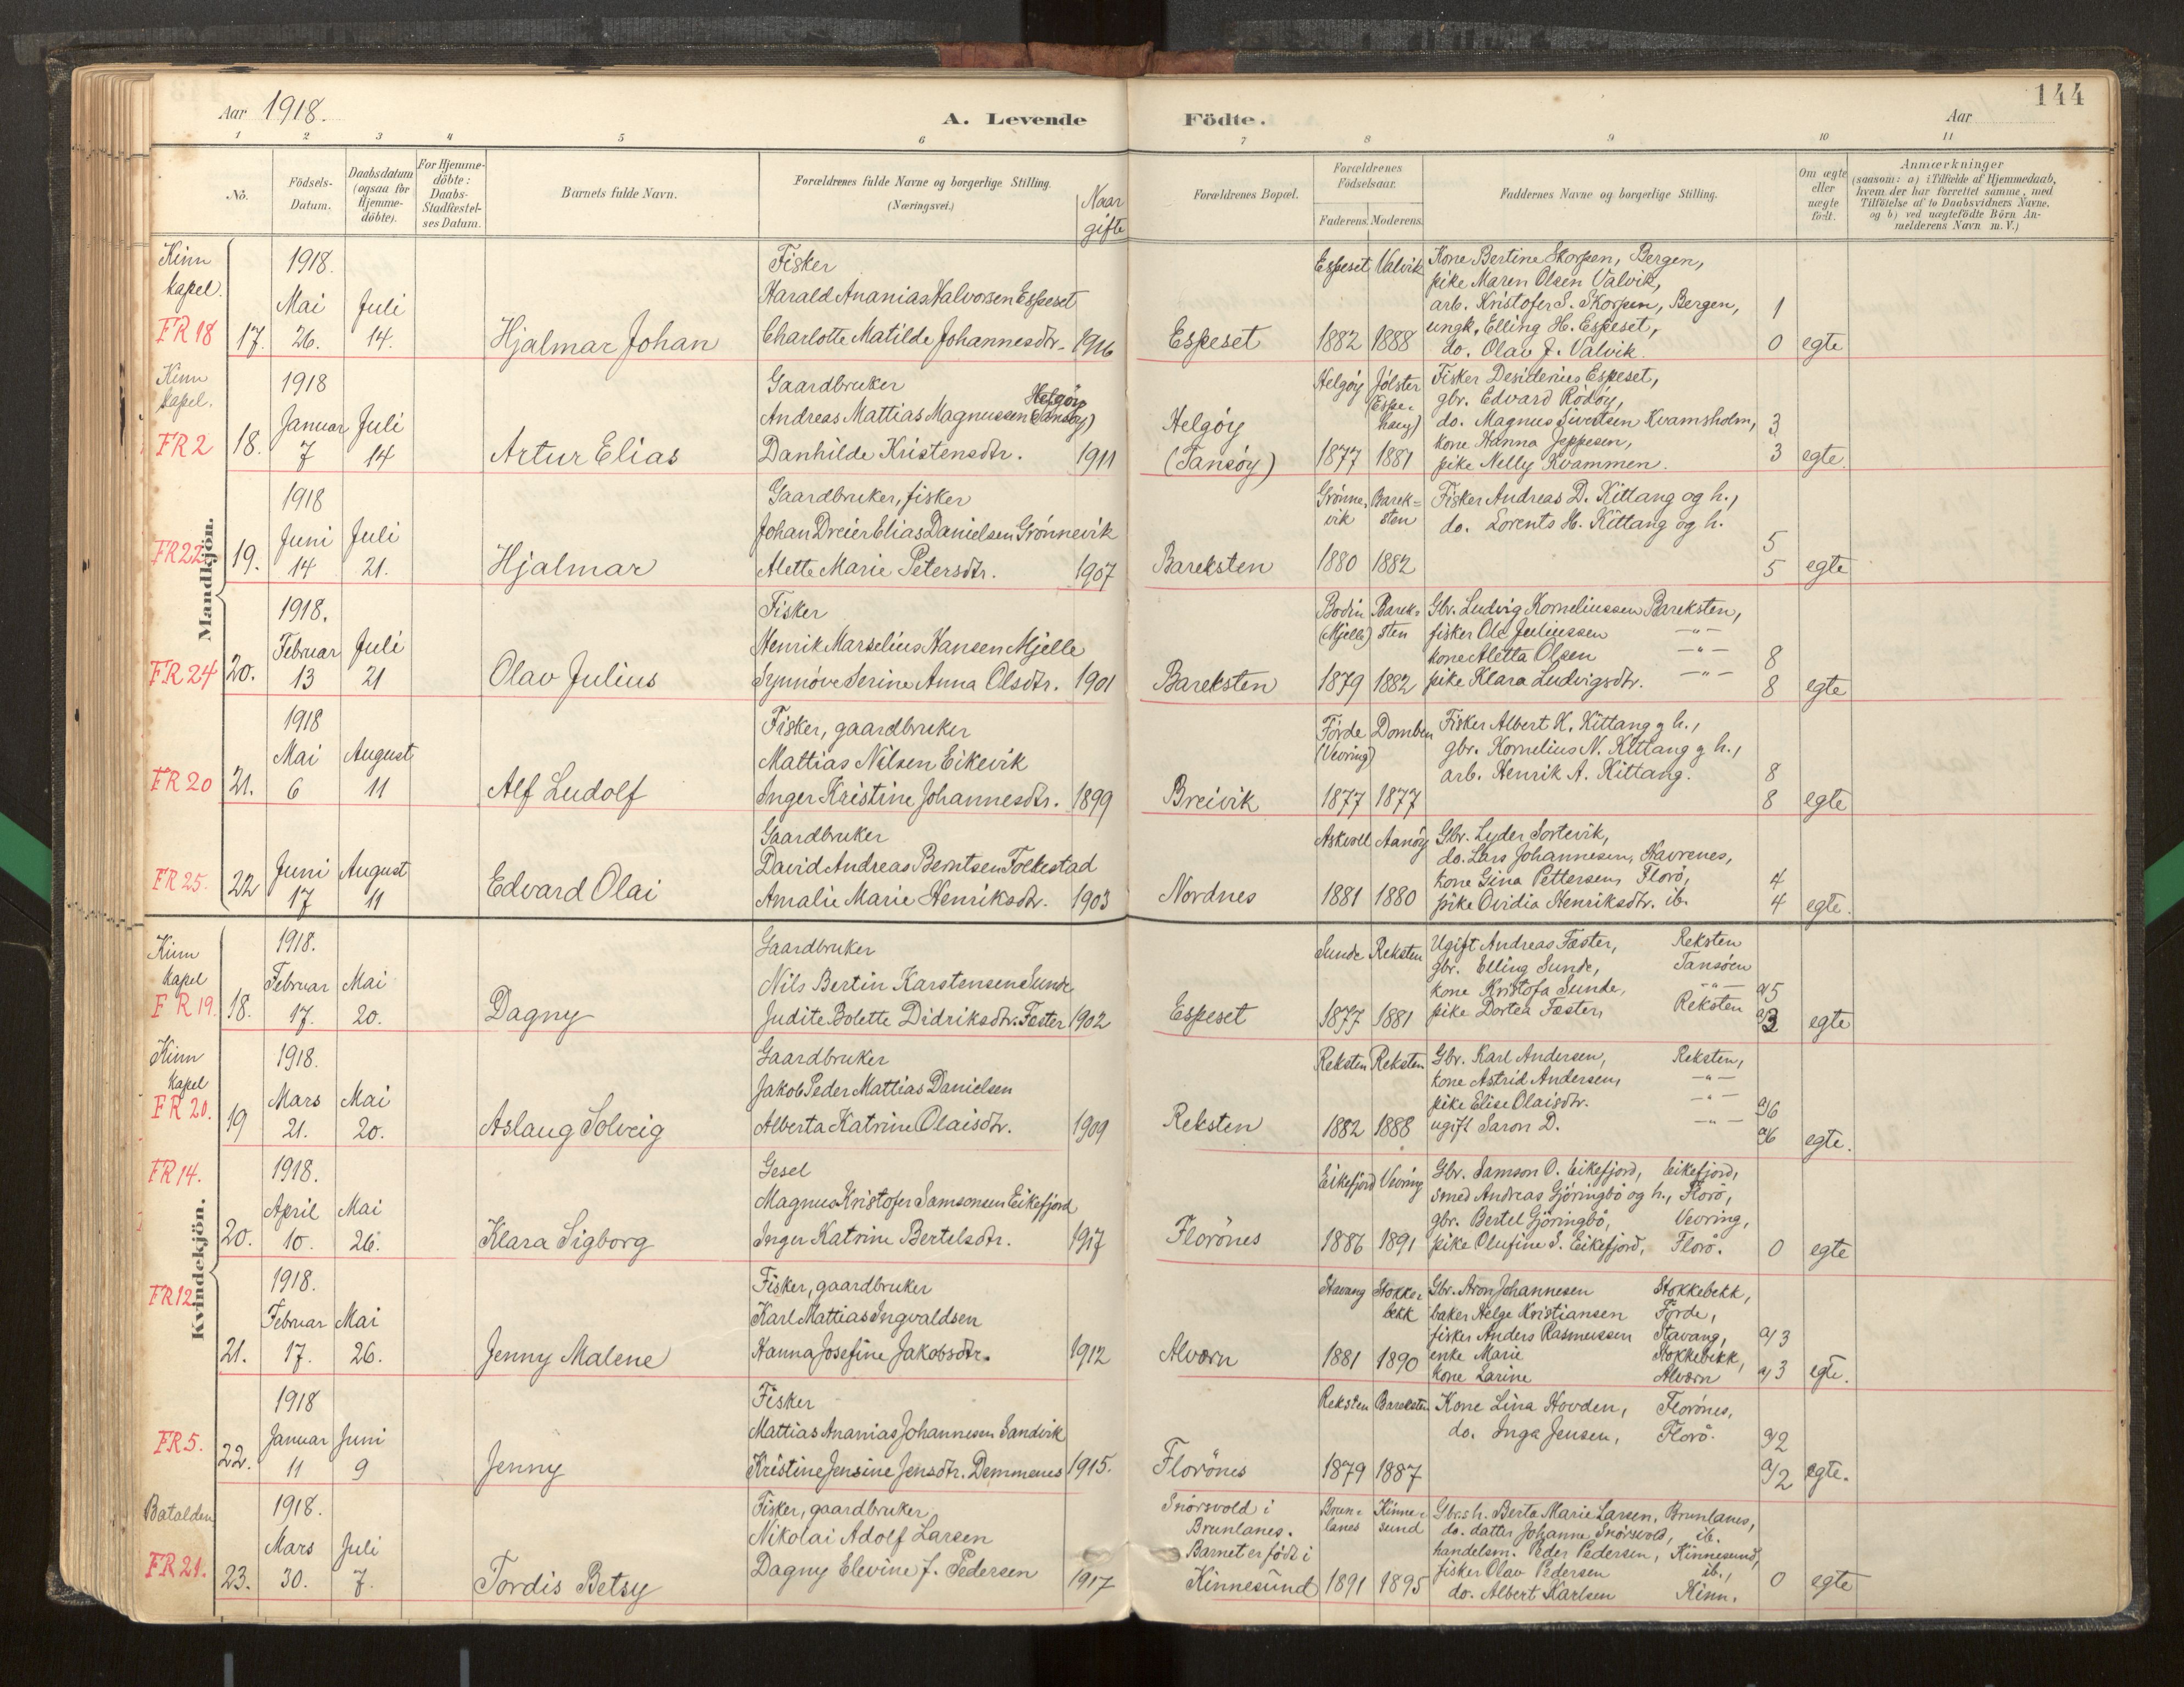 144
Aar 1918.
A. Levende Födte.
Aar
1 2 3 4 5 6 7 8 9 10 11
No.
Födsels-Datum.
Daabsdatum (ogsaa for Hjemme-döbte).
For Hjemme-döbte: Daabs-Stadfæstelses Datum.
Barnets fulde Navn.
Forældrenes fulde Navne og borgerlige Stilling.
(Næringsvei.)
Naar gifte
Forældrenes Bopæl.
Forældrenes Födselsaar.
Faderens. Moderens.
Faddernes Navne og borgerlige Stilling.
Om ægte eller uægte født.
Anmærkninger
(saasom: a) i Tilfælde af Hjemmedaab,
hvem der har forrettet samme, med
Tilföielse af to Daabsvidners Navne,
og b) ved uægtefödte Börn An-
melderens Navn m. V.)
Mandkjön.
Kinn kapel.
FR 18
17.
1918.
Mai 26.
Juli 14.
Hjalmar Johan
Fisker
Harald Ananias Halvorsen Espeset
Charlotte Matilde Johannesdtr. 1916
Espeset
Espeset 1882
Valvik 1888
Kone Bertine Skorpen, Bergen,
pike Maren Olsen Valvik,
arb. Kristofer S. Skorpen, Bergen,
ungk. Elling H. Espeset,
do. Olav J. Valvik.
1
0
egte
Kinn kapel.
FR 2
18.
1918
Januar 7
Juli 14
Artur Elias
Gaardbruker
Helgöy
Andreas Mattias Magnussen (Tansöy)
Danhilde Kristensdtr. 1911
Helgöy
(Tansöy)
Helgöy 1877
Jölster (Espehaug) 1881
Fisker Desiderius Espeset,
gbr. Edvard Rödöy,
do. Magnus Sivertsen Kvamsholm,
kone Hanna Jeppesen,
pike Nelly Kvammen.
3
3
egte.
FR 22
19.
1918
Juni 14
Juli 21.
Hjalmar
Gaardbruker, fisker
Johan Dreier Elias Danielsen Grönnevik
Alette Marie Petersdtr. 1907
Bareksten
Grönnevik 1880
Bareksten 1882
Fisker Andreas D. Kittang og h.,
do. Lorents H. Kittang og h.
5
5
egte
FR 24
20.
1918.
Februar 13
Juli 21
Olav Julius
Fisker
Henrik Marselius Hansen Mjelle
Synnöve Serine Anna Olsdtr. 1901
Bareksten
Bodin (Mjelle) 1879
Bareksten 1882
Gbr. Ludvig Korneliussen Bareksten,
fisker Ole Juliussen -"-
kone Aletta Olsen -"-
pike Klara Ludvigsdtr. -"-
8
8
egte
FR 20
21.
1918
Mai 6
August 11
Alf Ludolf
Fisker, gaardbruker
Mattias Nilsen Eikevik
Inger Kristine Johannesdtr. 1899
Breivik
Förde (Vevring) 1877
Domben 1877
Fisker Albert K. Kittang g h.,
gbr. Kornelius N. Kittang g h.,
arb. Henrik A. Kittang.
8
8
egte
FR 25.
22
Juni 17
August 11
Edvard Olai
Gaardbruker
David Andreas Berntsen Folkestad
Amalie Marie Henriksdtr. 1903
Nordnes
Askvoll 1881
Aanöy 1880
Gbr. Lyder Sortevik,
do. Lars Johannesen, Havrenes,
kone Gina Pettersen, Florö,
pike Ovidia Henriksdtr. ib.
4
4
egte.
Kvindekjön.
Kinn kapel
FR 19.
18.
1918.
Februar 17.
Mai 20.
Dagny
Gaardbruker
Nils Bertin Karstensen Sunde
Judite Bolette Didriksdtr. Fæster 1902
Espeset
Sunde 1877
Reksten 1881
Ugift Andreas Fæster, Reksten
gbr. Elling Sunde, Tansöen
kone Kristofa Sunde, -"-
pike Dortea Fæster, Reksten
a/5
a/3
egte
Kinn Kapel
FR 20.
19
1918.
Mars 21.
Mai 20.
Aslaug Solveig
Gaardbruker
Jakob Peder Mattias Danielsen
Alberta Katrine Olaisdtr. 1909
Reksten
Reksten 1882
Reksten 1888
Gbr. Karl Andersen, Reksten,
kone Astrid Andersen, -"-
pike Elise Olaisdtr. -"-
ugift Saron D. -"-
a/6
a/6
egte.
FR 14.
20.
1918.
April 10.
Mai 26.
Klara Sigborg
Gesel
Magnus Kristofer Samsonsen Eikefjord
Inger Katrine Bertelsdtr. 1917
Florönes
Eikefjord 1886
Vevring 1891
Gbr. Samson O. Eikefjord, Eikefjord,
smed Andreas Gjöringbö og h., Florö,
gbr. Bertel Gjöringbö, Vevring,
pike Olufine S. Eikefjord, Florö.
0
egte
FR 12
21.
1918.
Februar 17.
Mai 26.
Jenny Malene
Fisker, gaardbruker
Karl Mattias Ingvaldsen
Hanna Josefine Jakobsdtr. 1912
Alværn
Stavang 1881
Stokkebekk 1890
Gbr. Aron Johannesen Stokkebekk,
baker Helge Kristiansen Förde,
fisker Anders Rasmussen Stavang,
enke Marie Stokkebekk,
kone Larine Alværn
a/3
a/3
egte.
FR 5.
22.
1918
Januar 11
Juni 9
Jenny
Fisker
Mattias Ananias Johannesen Sandvik
Kristine Jensine Jensdtr. Demmenes 1915.
Florönes
Reksten 1879
Bareksten 1887
Kone Lina Hovden, Florönes,
do. Inga Jensen, Florö.
a/2
a/2
egte.
Batalden
FR 21.
23.
1918.
Mars 30.
Juli 7.
Tordis Betsy
Fisker, gaardbruker
Nikolai Adolf Larsen
Dagny Elevine f. Pedersen 1917
Snörsvold i
Brunlanes.
Barnet er födt i
Kinnesund
Brunlanes 1891
Kinnesund 1895
Gbr.s h. Berta Marie Larsen, Brunlanes,
do. datter Johanne Snörsvold, ib.
handelsm. Peder Pedersen, Kinnesund,
fisker Olav Pedersen ib.,
do. Albert Karlsen Kinn.
0
egte